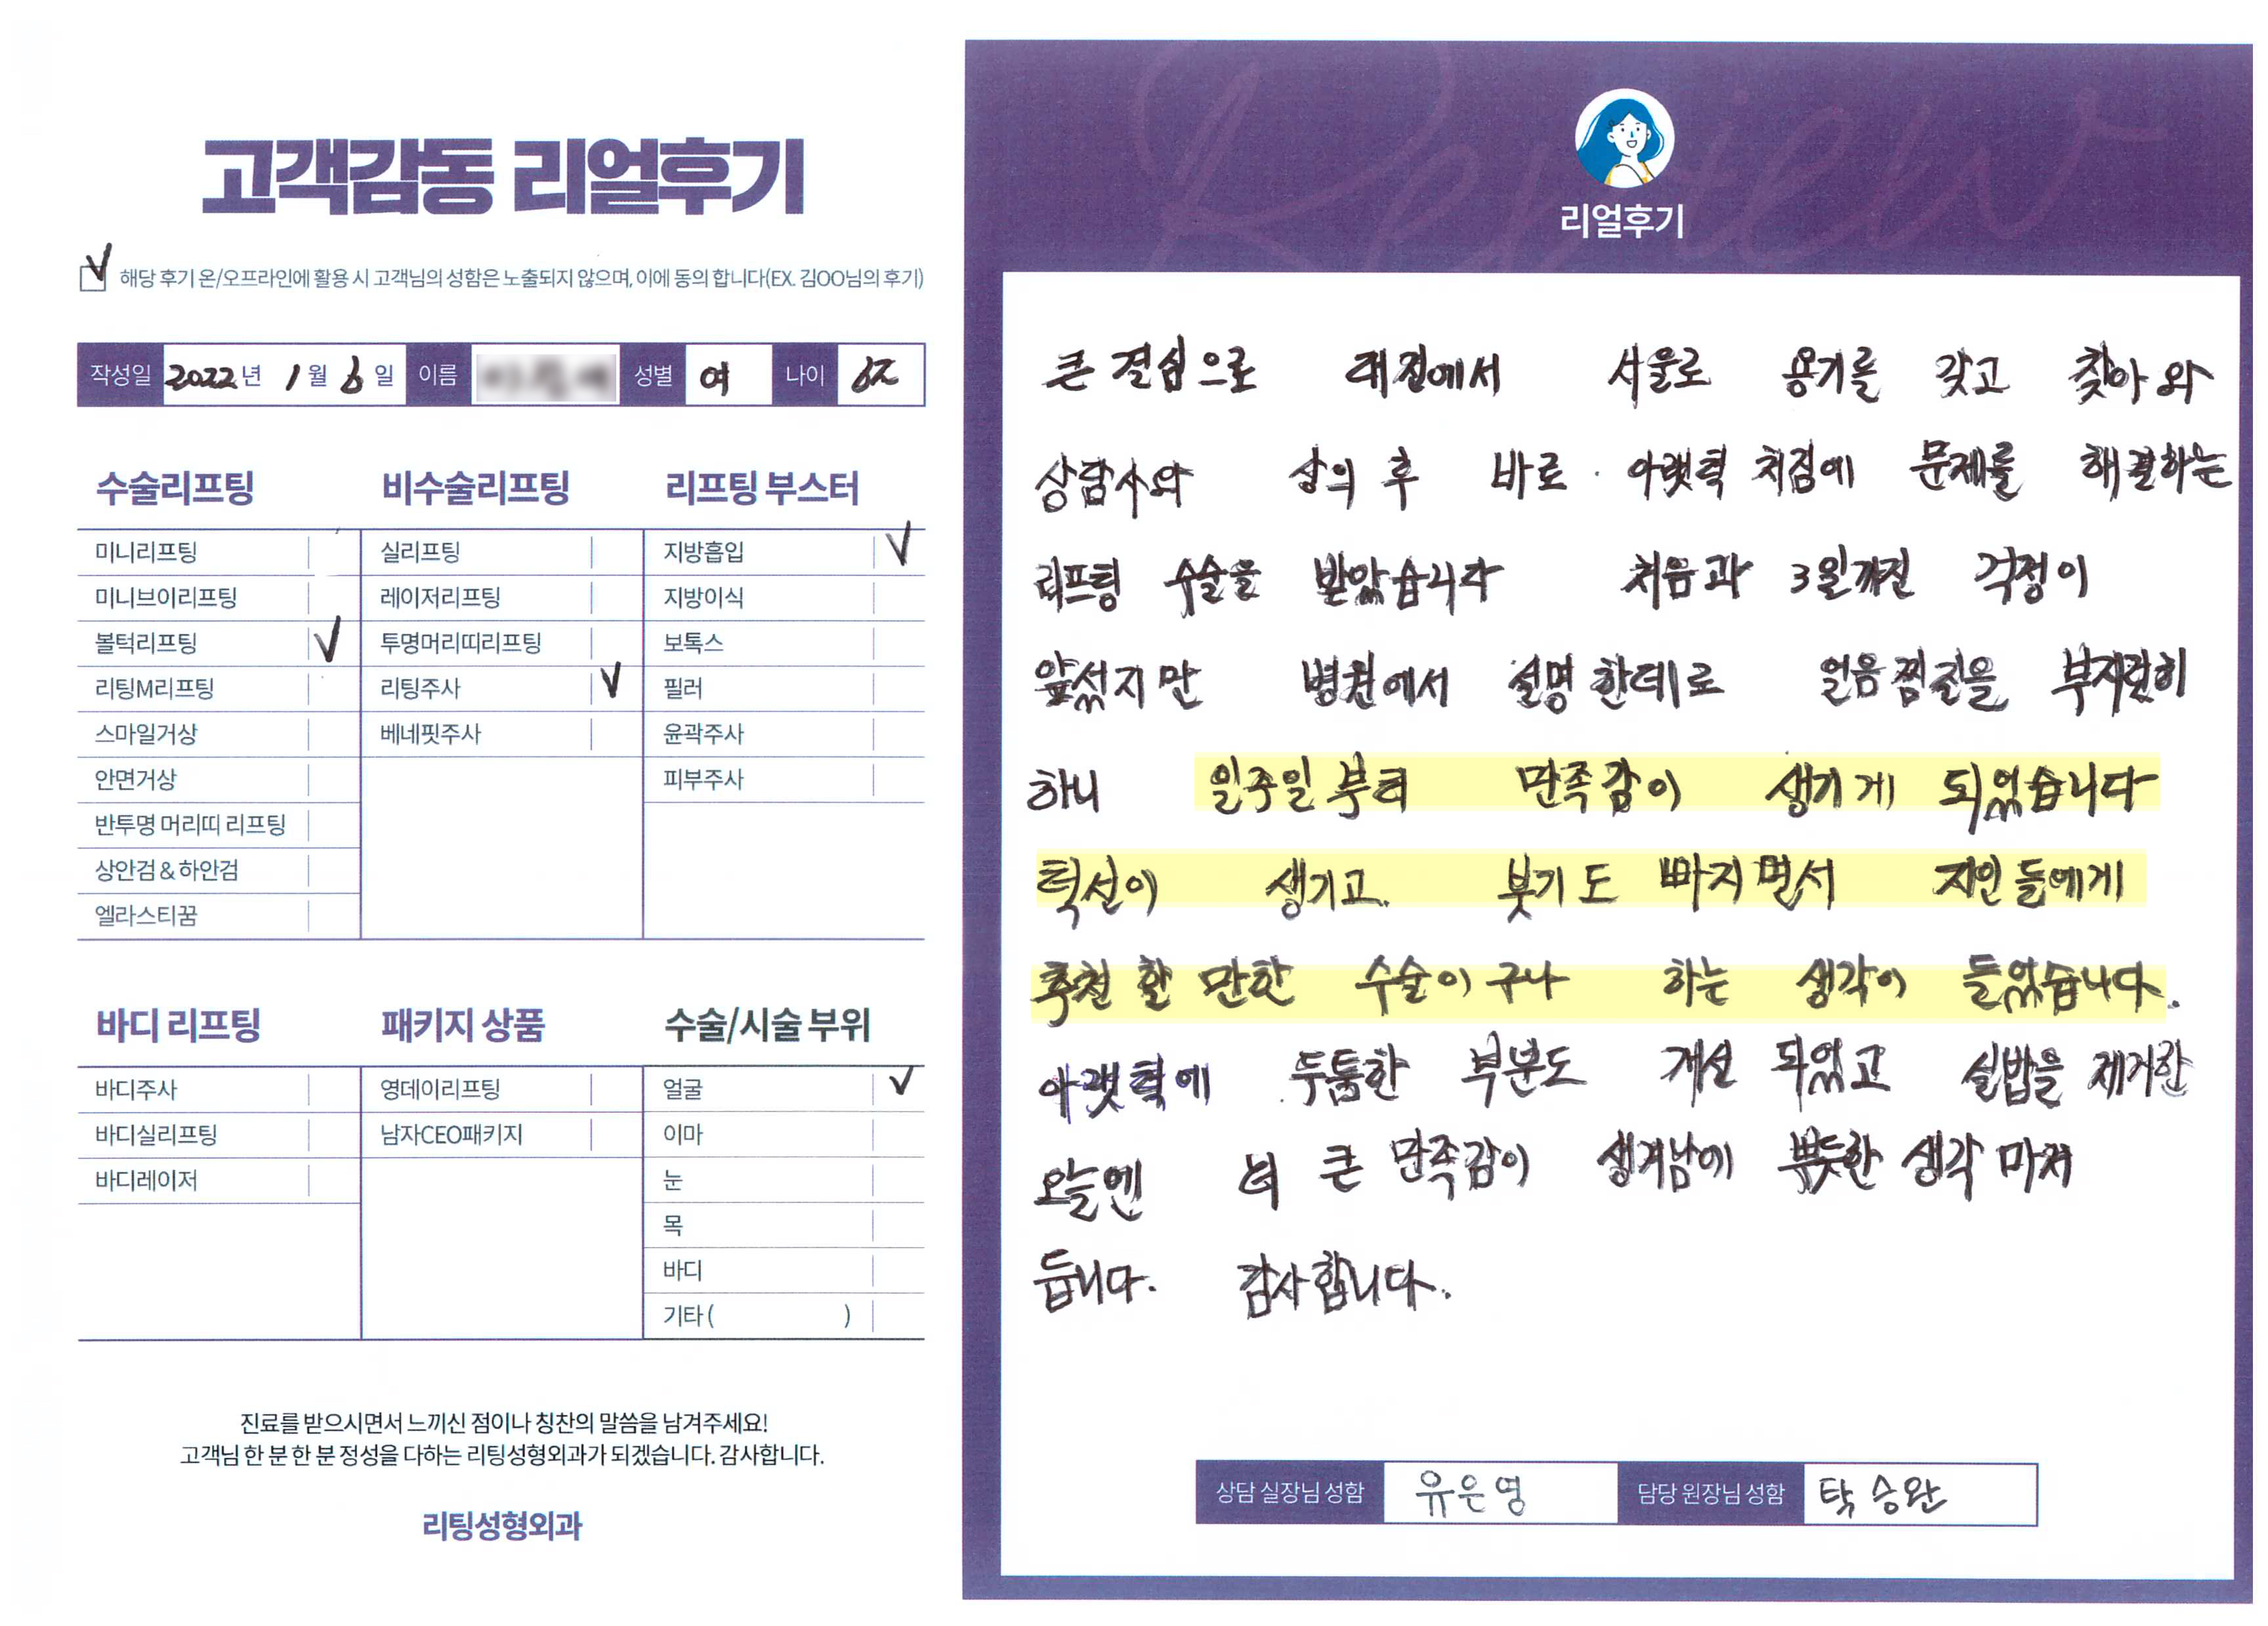 고객감동 리얼후기
해당 후기 온/오프라인에 활용 시 고객님의 성함은 노출되지 않으며, 이에 동의 합니다(EX. 김OO님의 후기)
작성일 2022년 1월 6일 이름 성별 여 나이
수술리프팅
미니리프팅
미니브이리프팅
볼턱리프팅
리팅M리프팅
스마일거상
안면거상
반투명 머리띠 리프팅
상안검 & 하안검
엘라스티꿈
비수술리프팅
실리프팅
레이저리프팅
투명머리띠리프팅
리팅주사
베네핏주사
리프팅 부스터
지방흡입
지방이식
보톡스
필러
윤곽주사
피부주사
바디 리프팅
바디주사
바디실리프팅
바디레이저
패키지 상품
영데이리프팅
남자CEO패키지
수술/시술 부위
얼굴
이마
눈
목
바디
기타 ( )
진료를 받으시면서 느끼신 점이나 칭찬의 말씀을 남겨주세요!
고객님 한 분 한 분 정성을 다하는 리팅성형외과가 되겠습니다. 감사합니다.
리팅성형외과
Review
리얼후기
큰 결심으로 대전에서 서울로 용기를 갖고 찾아와
상담사와 상의 후 바로 아랫턱 처짐에 문제를 해결하는
리프팅 수술을 받았습니다 처음과 3일까진 걱정이
앞섰지만 병원에서 설명한데로 얼음찜질을 부지런히
하니 일주일부터 만족감이 생기게 되었습니다
턱선이 생기고 붓기도 빠지면서 지인들에게
추천 할 만한 수술이구나 하는 생각이 들었습니다.
아랫턱에 두툼한 부분도 개선 되었고 실밥을 제거한
오늘엔 더 큰 만족감이 생겨남에 뿌듯한 생각 마저
듭니다. 감사합니다.
상담 실장님 성함 유은영 담당 원장님 성함 탁승완